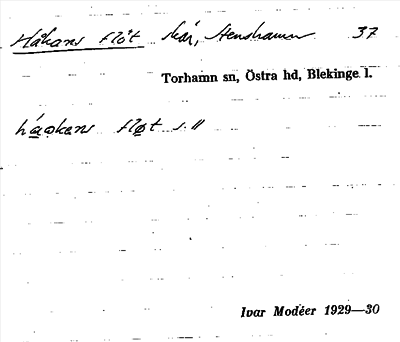 Håkans flöt skär, Stenshamn 37
Torhamn sn, Östra hd, Blekinge l.
håokans fløt s. ll
Ivar Modéer 1929—30